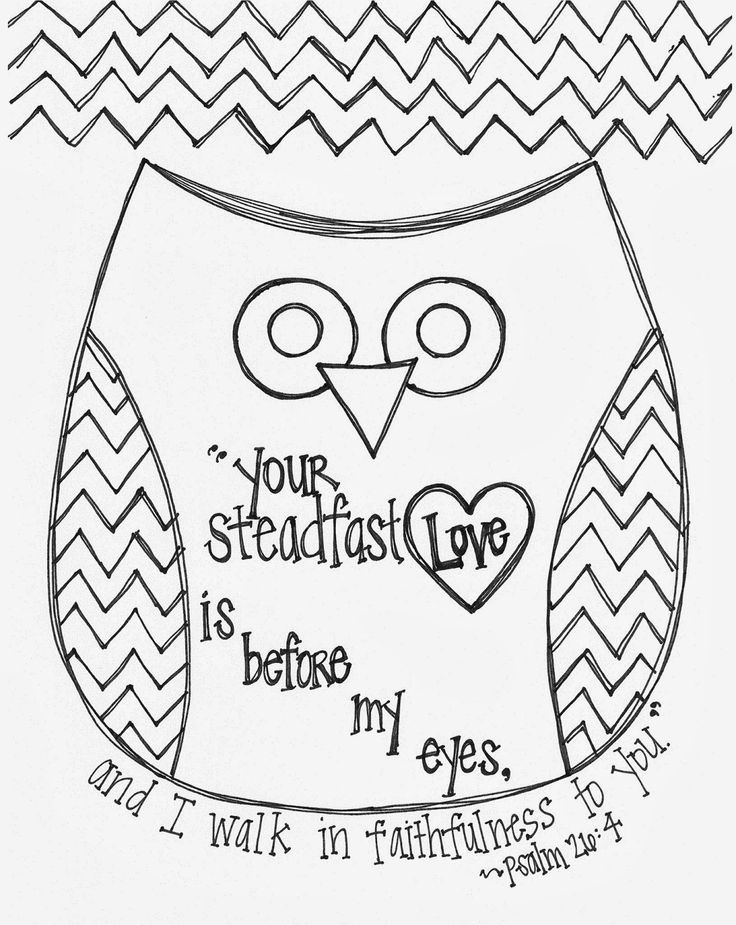 "your
steadfast Love
is
before
my
eyes,
and I walk in faithfulness to you."
~Psalm 26:4